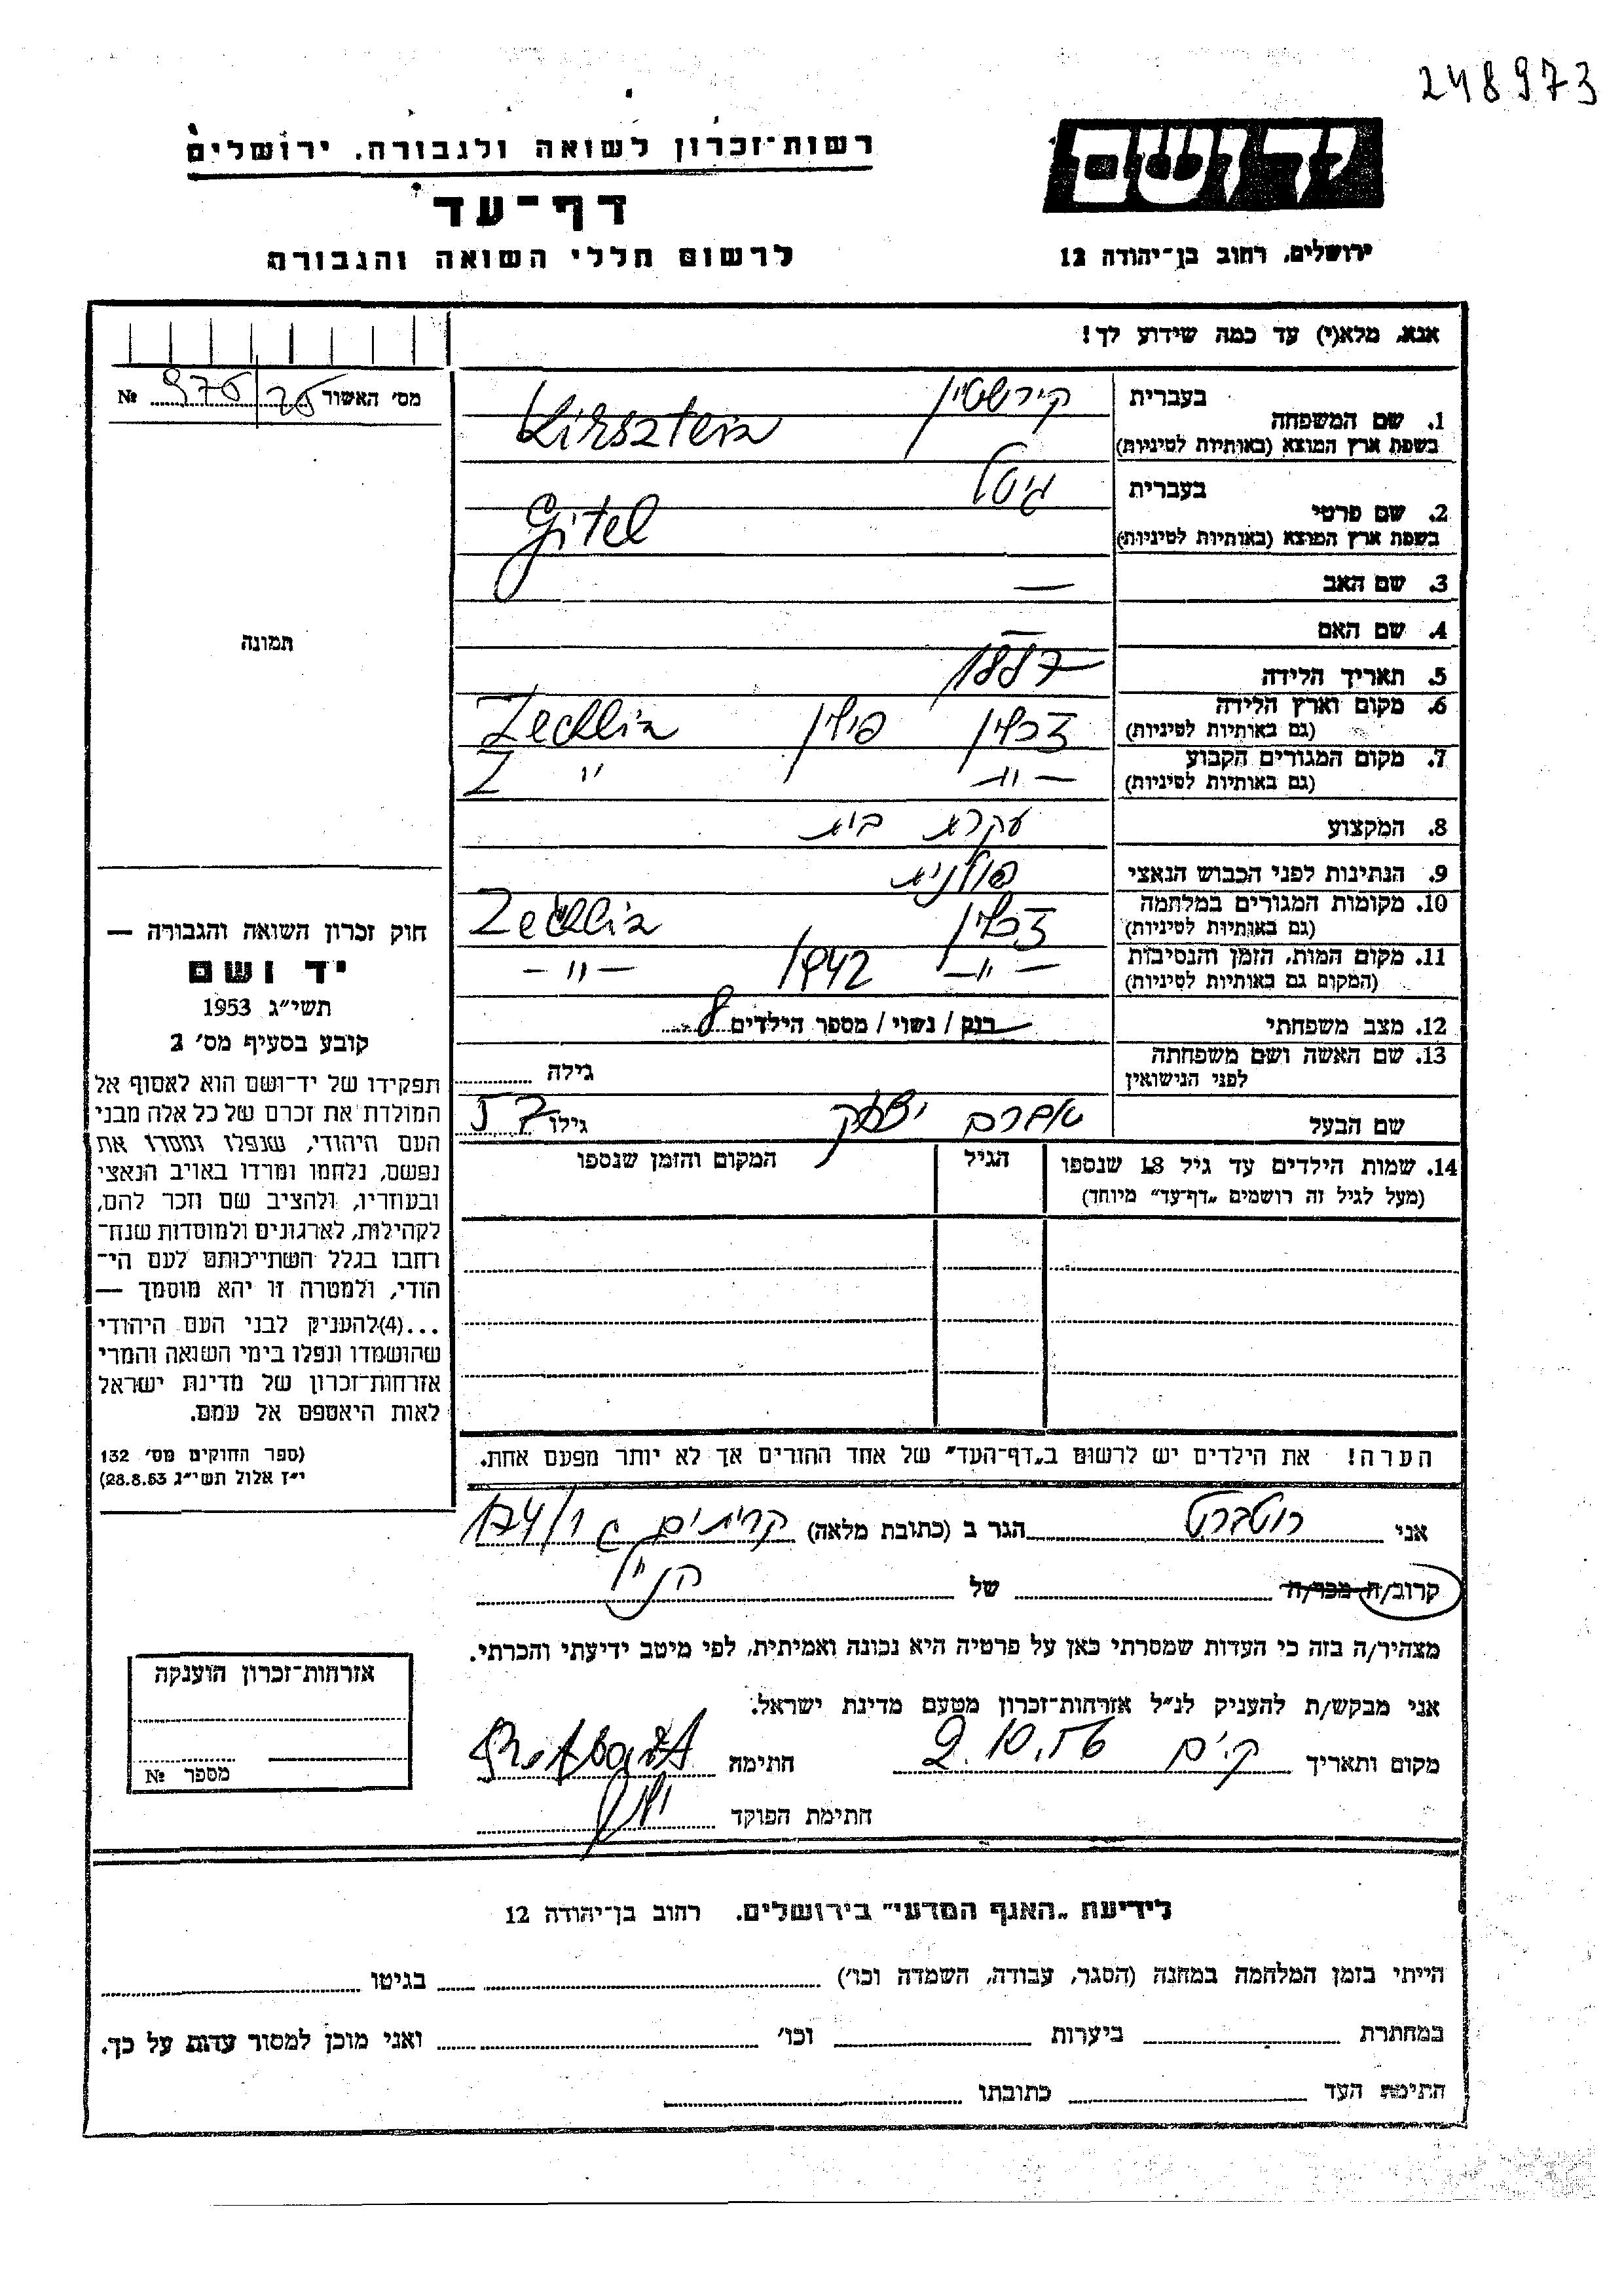 248973
יד ושם
ירושלים, רחוב בן־יהודה 12
רשות־זכרון לשואה ולגבורה, ירושלים
דף־עד
לרשום חללי השואה והגבורה
אנא, מלא(י) עד כמה שידוע לך!
מס' האשור 976/26 №
תמונה
1. שם המשפחה בעברית קירשטיין
בשפת ארץ המוצא (באותיות לטיניות) Kirsztein
2. שם פרטי בעברית גיטל
בשפת ארץ המוצא (באותיות לטיניות) Gitel
3. שם האב —
4. שם האם —
5. תאריך הלידה 1887
6. מקום וארץ הלידה זכלין פולין Zechlin
(גם באותיות לטיניות)
7. מקום המגורים הקבוע — " — " Z
(גם באותיות לטיניות)
8. המקצוע עקרת בית
9. הנתינות לפני הכבוש הנאצי פולנית
10. מקומות המגורים במלחמה זכלין Zechlin
(גם באותיות לטיניות)
11. מקום המות, הזמן והנסיבות — " — 1942 — " —
(המקום גם באותיות לטיניות)
12. מצב משפחתי רווק / נשוי / מספר הילדים 8
13. שם האשה ושם משפחתה
לפני הנישואין
גילה
שם הבעל אברם יצחק גילו 57
14. שמות הילדים עד גיל 18 שנספו
(מעל לגיל זה רושמים „דף־עד" מיוחד)
הגיל
המקום והזמן שנספו
הערה! את הילדים יש לרשום ב„דף־העד" של אחד ההורים אך לא יותר מפעם אחת.
חוק זכרון השואה והגבורה —
יד ושם
תשי"ג 1953
קובע בסעיף מס' 2
תפקידו של יד־ושם הוא לאסוף אל
המולדת את זכרם של כל אלה מבני
העם היהודי, שנפלו ומסרו את
נפשם, נלחמו ומרדו באויב הנאצי
ובעוזריו, ולהציב שם וזכר להם,
לקהילות, לארגונים ולמוסדות שנח־
רבו בגלל השתייכותם לעם הי־
הודי, ולמטרה זו יהא מוסמך —
...(4)להעניק לבני העם היהודי
שהושמדו ונפלו בימי השואה והמרי
אזרחות־זכרון של מדינת ישראל
לאות היאספם אל עמם.
(ספר החוקים מס' 132
י"ז אלול תשי"ג 28.8.53)
אני רוטברט הגר ב (כתובת מלאה) קרית ים ג 174/1
קרוב/ה מכר/ה של הנ"ל
מצהיר/ה בזה כי העדות שמסרתי כאן על פרטיה היא נכונה ואמיתית, לפי מיטב ידיעתי והכרתי.
אני מבקש/ת להעניק לנ"ל אזרחות־זכרון מטעם מדינת ישראל.
מקום ותאריך ק.ים 2.10.56 חתימה Rotbart
חתימת הפוקד
אזרחות־זכרון הוענקה
מספר №
לידיעת „האגף המדעי" בירושלים, רחוב בן־יהודה 12
הייתי בזמן המלחמה במחנה (הסגר, עבודה, השמדה וכו') בגיטו
במחתרת ביערות וכו' ואני מוכן למסור עדות על כך.
חתימת העד כתובתו